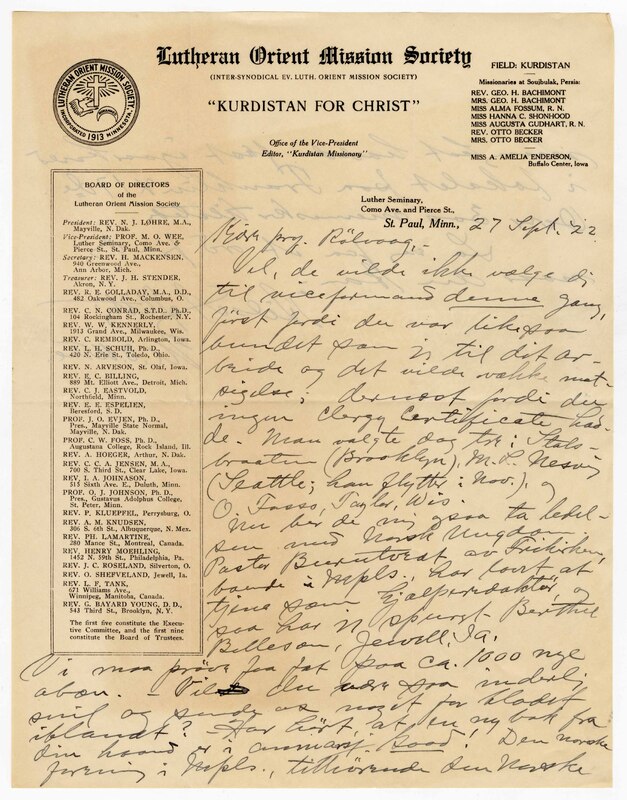 LUTHERAN ORIENT MISSION SOCIETY.
INCORPORATED MINNESOTA.
1913
Lutheran Orient Mission Society
(INTER-SYNODICAL EV. LUTH. ORIENT MISSION SOCIETY)
"KURDISTAN FOR CHRIST"
Office of the Vice-President
Editor, "Kurdistan Missionary"
FIELD: KURDISTAN
Missionaries at Soujbulak, Persia:
REV. GEO. H. BACHIMONT
MRS. GEO. H. BACHIMONT
MISS ALMA FOSSUM, R. N.
MISS HANNA C. SHONHOOD
MISS AUGUSTA GUDHART, R. N.
REV. OTTO BECKER
MRS. OTTO BECKER
MISS A. AMELIA ENDERSON,
Buffalo Center, Iowa
BOARD OF DIRECTORS
of the
Lutheran Orient Mission Society
President: REV. N. J. LØHRE, M.A.,
Mayville, N. Dak.
Vice-President: PROF. M. O. WEE,
Luther Seminary, Como Ave. &
Pierce St., St. Paul, Minn.
Secretary: REV. H. MACKENSEN,
940 Greenwood Ave.,
Ann Arbor, Mich.
Treasurer: REV. J. H. STENDER,
Akron, N. Y.
REV. R. E. GOLLADAY, M.A., D.D.,
482 Oakwood Ave., Columbus, O.
REV. C. N. CONRAD, S.T.D. Ph.D.,
104 Rockingham St., Rochester, N.Y.
REV. W. W. KENNERLY,
1913 Grand Ave., Milwaukee, Wis.
REV. C. REMBOLD, Arlington, Iowa.
REV. L. H. SCHUH, Ph.D.,
420 N. Erie St., Toledo, Ohio.
REV. N. ARVESON, St. Olaf, Iowa.
REV. E. C. BILLING,
889 Mt. Elliott Ave., Detroit, Mich.
REV. C. J. EASTVOLD,
Northfield, Minn.
REV. E. E. ESPELIEN,
Beresford, S. D.
PROF. J. O. EVJEN, Ph. D.,
Pres., Mayville State Normal,
Mayville, N. Dak.
PROF. C. W. FOSS, Ph. D.,
Augustana College, Rock Island, Ill.
REV. A. HOEGER, Arthur, N. Dak.
REV. C. C. A. JENSEN, M. A.,
700 S. Third St., Clear Lake, Iowa.
REV. I. A. JOHNASON,
515 Sixth Ave. E., Duluth, Minn.
PROF. O. J. JOHNSON, Ph. D.,
Pres., Gustavus Adolphus College,
St. Peter, Minn.
REV. P. KLUEPFEL, Perrysburg, O.
REV. A. M. KNUDSEN,
306 S. 6th St., Albuquerque, N. Mex.
REV. PH. LAMARTINE,
280 Mance St., Montreal, Canada.
REV. HENRY MOEHLING,
1452 N. 59th St., Philadelphia, Pa.
REV. J. C. ROSELAND, Silverton, O.
REV. O. SHEFVELAND, Jewell, Ia.
REV. L. F. TANK,
671 Williams Ave.,
Winnipeg, Manitoba, Canada.
REV. G. BAYARD YOUNG, D. D.,
543 Third St., Brooklyn, N. Y.
The first five constitute the Execu-
tive Committee, and the first nine
constitute the Board of Trustees.
Luther Seminary,
Como Ave. and Pierce St.,
St. Paul, Minn., 27 Sept. 22
Kjære prof. Rölvaag,-
Vel, de vilde ikke vælge dig
til viceformand denne gang,
först fordi du var likesaa
bundet som jeg til dit ar-
beide og det vilde vække mot-
sigelse; dernæst fordi du
ingen clergy certificate hav-
de. Man valgte dog tre:
(Brooklyn), M. L. Nesvig
(Seattle; han flytter i Nov.), og
O. Fosso, Taylor, Wis.
Nu ber de mig ogsaa ta ledel-
sen med Norsk Ungdom.
Pastor av Frikirken,
i Mpls, har lovt at
tjene som hjælperedaktör, og
saa har vi spurgt Berthel
Belleson, Jewell, Ia.
Vi maa pröve faa fat saa ca. 1000 nye
abon. - Vil du være saa inderlig
snil og sende os noget for bladet
iblandt? Har hört, at en ny bok fra
din haand er i anmarsj. Good! Den norske
forening i Mpls, tilhörende den Norske